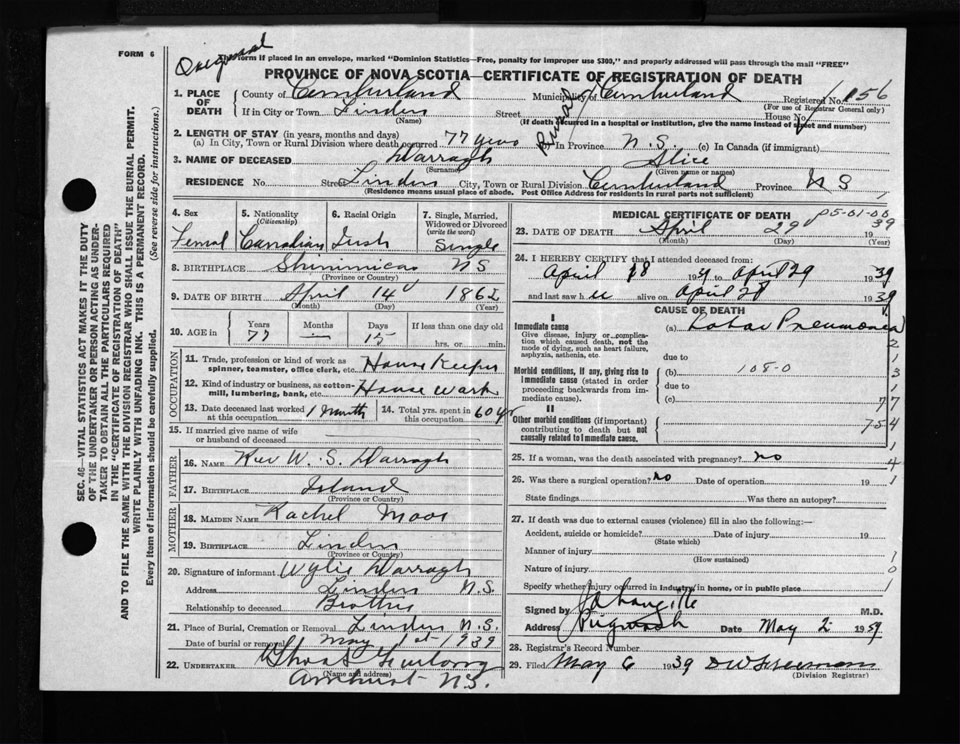 FORM 6
Original
This form if placed in an envelope, marked "Dominion Statistics—Free, penalty for improper use $300," and properly addressed will pass through the mail "FREE"
PROVINCE OF NOVA SCOTIA—CERTIFICATE OF REGISTRATION OF DEATH
1. PLACE OF DEATH County of Cumberland Municipality of Cumberland Registered No. 156
(For use of Registrar General only)
If in City or Town Linden Street House No.
(Name) (If death occurred in a hospital or institution, give the name instead of street and number)
2. LENGTH OF STAY (in years, months and days)
(a) In City, Town or Rural Division where death occurred 77 years Rural (b) In Province N.S. (c) In Canada (if immigrant)
3. NAME OF DECEASED Darragh Alice
(Surname) (Given name or names)
RESIDENCE No. Street Linden City, Town or Rural Division Cumberland Province N S
(Residence means usual place of abode. Post Office Address for residents in rural parts not sufficient)
4. Sex 5. Nationality (Citizenship) 6. Racial Origin 7. Single, Married, Widowed or Divorced (write the word)
Femal Canadian Irish Single
8. BIRTHPLACE Shinimicas N S
(Province or Country)
9. DATE OF BIRTH April 14 1862
(Month) (Day) (Year)
10. AGE in Years Months Days If less than one day old
77 — 15 hrs. or min.
OCCUPATION
11. Trade, profession or kind of work as spinner, teamster, office clerk, etc. House Keeper
12. Kind of industry or business, as cotton-mill, lumbering, bank, etc. House work
13. Date deceased last worked at this occupation 1 Month 14. Total yrs. spent in this occupation 60 yr
15. If married give name of wife or husband of deceased
FATHER
16. NAME Rev W. S. Darragh
17. BIRTHPLACE Island
(Province or Country)
MOTHER
18. MAIDEN NAME Rachel Moor
19. BIRTHPLACE Linden
(Province or Country)
20. Signature of informant Wylie Darragh
Address Linden N.S.
Relationship to deceased Brother
21. Place of Burial, Cremation or Removal Linden N.S.
Date of burial or removal May 1st 1939
22. UNDERTAKER Furlong
(Name and address)
Amherst N.S.
MEDICAL CERTIFICATE OF DEATH 05-01-00
23. DATE OF DEATH April 29 1939
(Month) (Day) (Year)
24. I HEREBY CERTIFY that I attended deceased from:
April 18 1939 to April 29 1939
and last saw h er alive on April 28 1939
CAUSE OF DEATH
I
Immediate cause (a) Lobar Pneumonia
Give disease, injury or complication which caused death, not the mode of dying, such as heart failure, asphyxia, asthenia, etc.
due to
Morbid conditions, if any, giving rise to immediate cause (stated in order proceeding backwards from immediate cause). (b) 108-0
due to
(c) 77
II
Other morbid conditions (if important) contributing to death but not causally related to immediate cause. 754
25. If a woman, was the death associated with pregnancy? no
26. Was there a surgical operation? no Date of operation 19
State findings Was there an autopsy?
27. If death was due to external causes (violence) fill in also the following:—
Accident, suicide or homicide? Date of injury 19
(State which)
Manner of injury
(How sustained)
Nature of injury
Specify whether injury occurred in industry, in home, or in public place
Signed by M.D.
Address Pugwash Date May 2 1939
28. Registrar's Record Number
29. Filed May 6 1939 D W Freeman
(Division Registrar)
SEC. 46—VITAL STATISTICS ACT MAKES IT THE DUTY
OF THE UNDERTAKER OR PERSON ACTING AS UNDER-
TAKER TO OBTAIN ALL THE PARTICULARS REQUIRED
IN THE "CERTIFICATE OF REGISTRATION OF DEATH"
AND TO FILE THE SAME WITH THE DIVISION REGISTRAR WHO SHALL ISSUE THE BURIAL PERMIT.
WRITE PLAINLY WITH UNFADING INK. THIS IS A PERMANENT RECORD.
Every item of information should be carefully supplied. (See reverse side for instructions.)